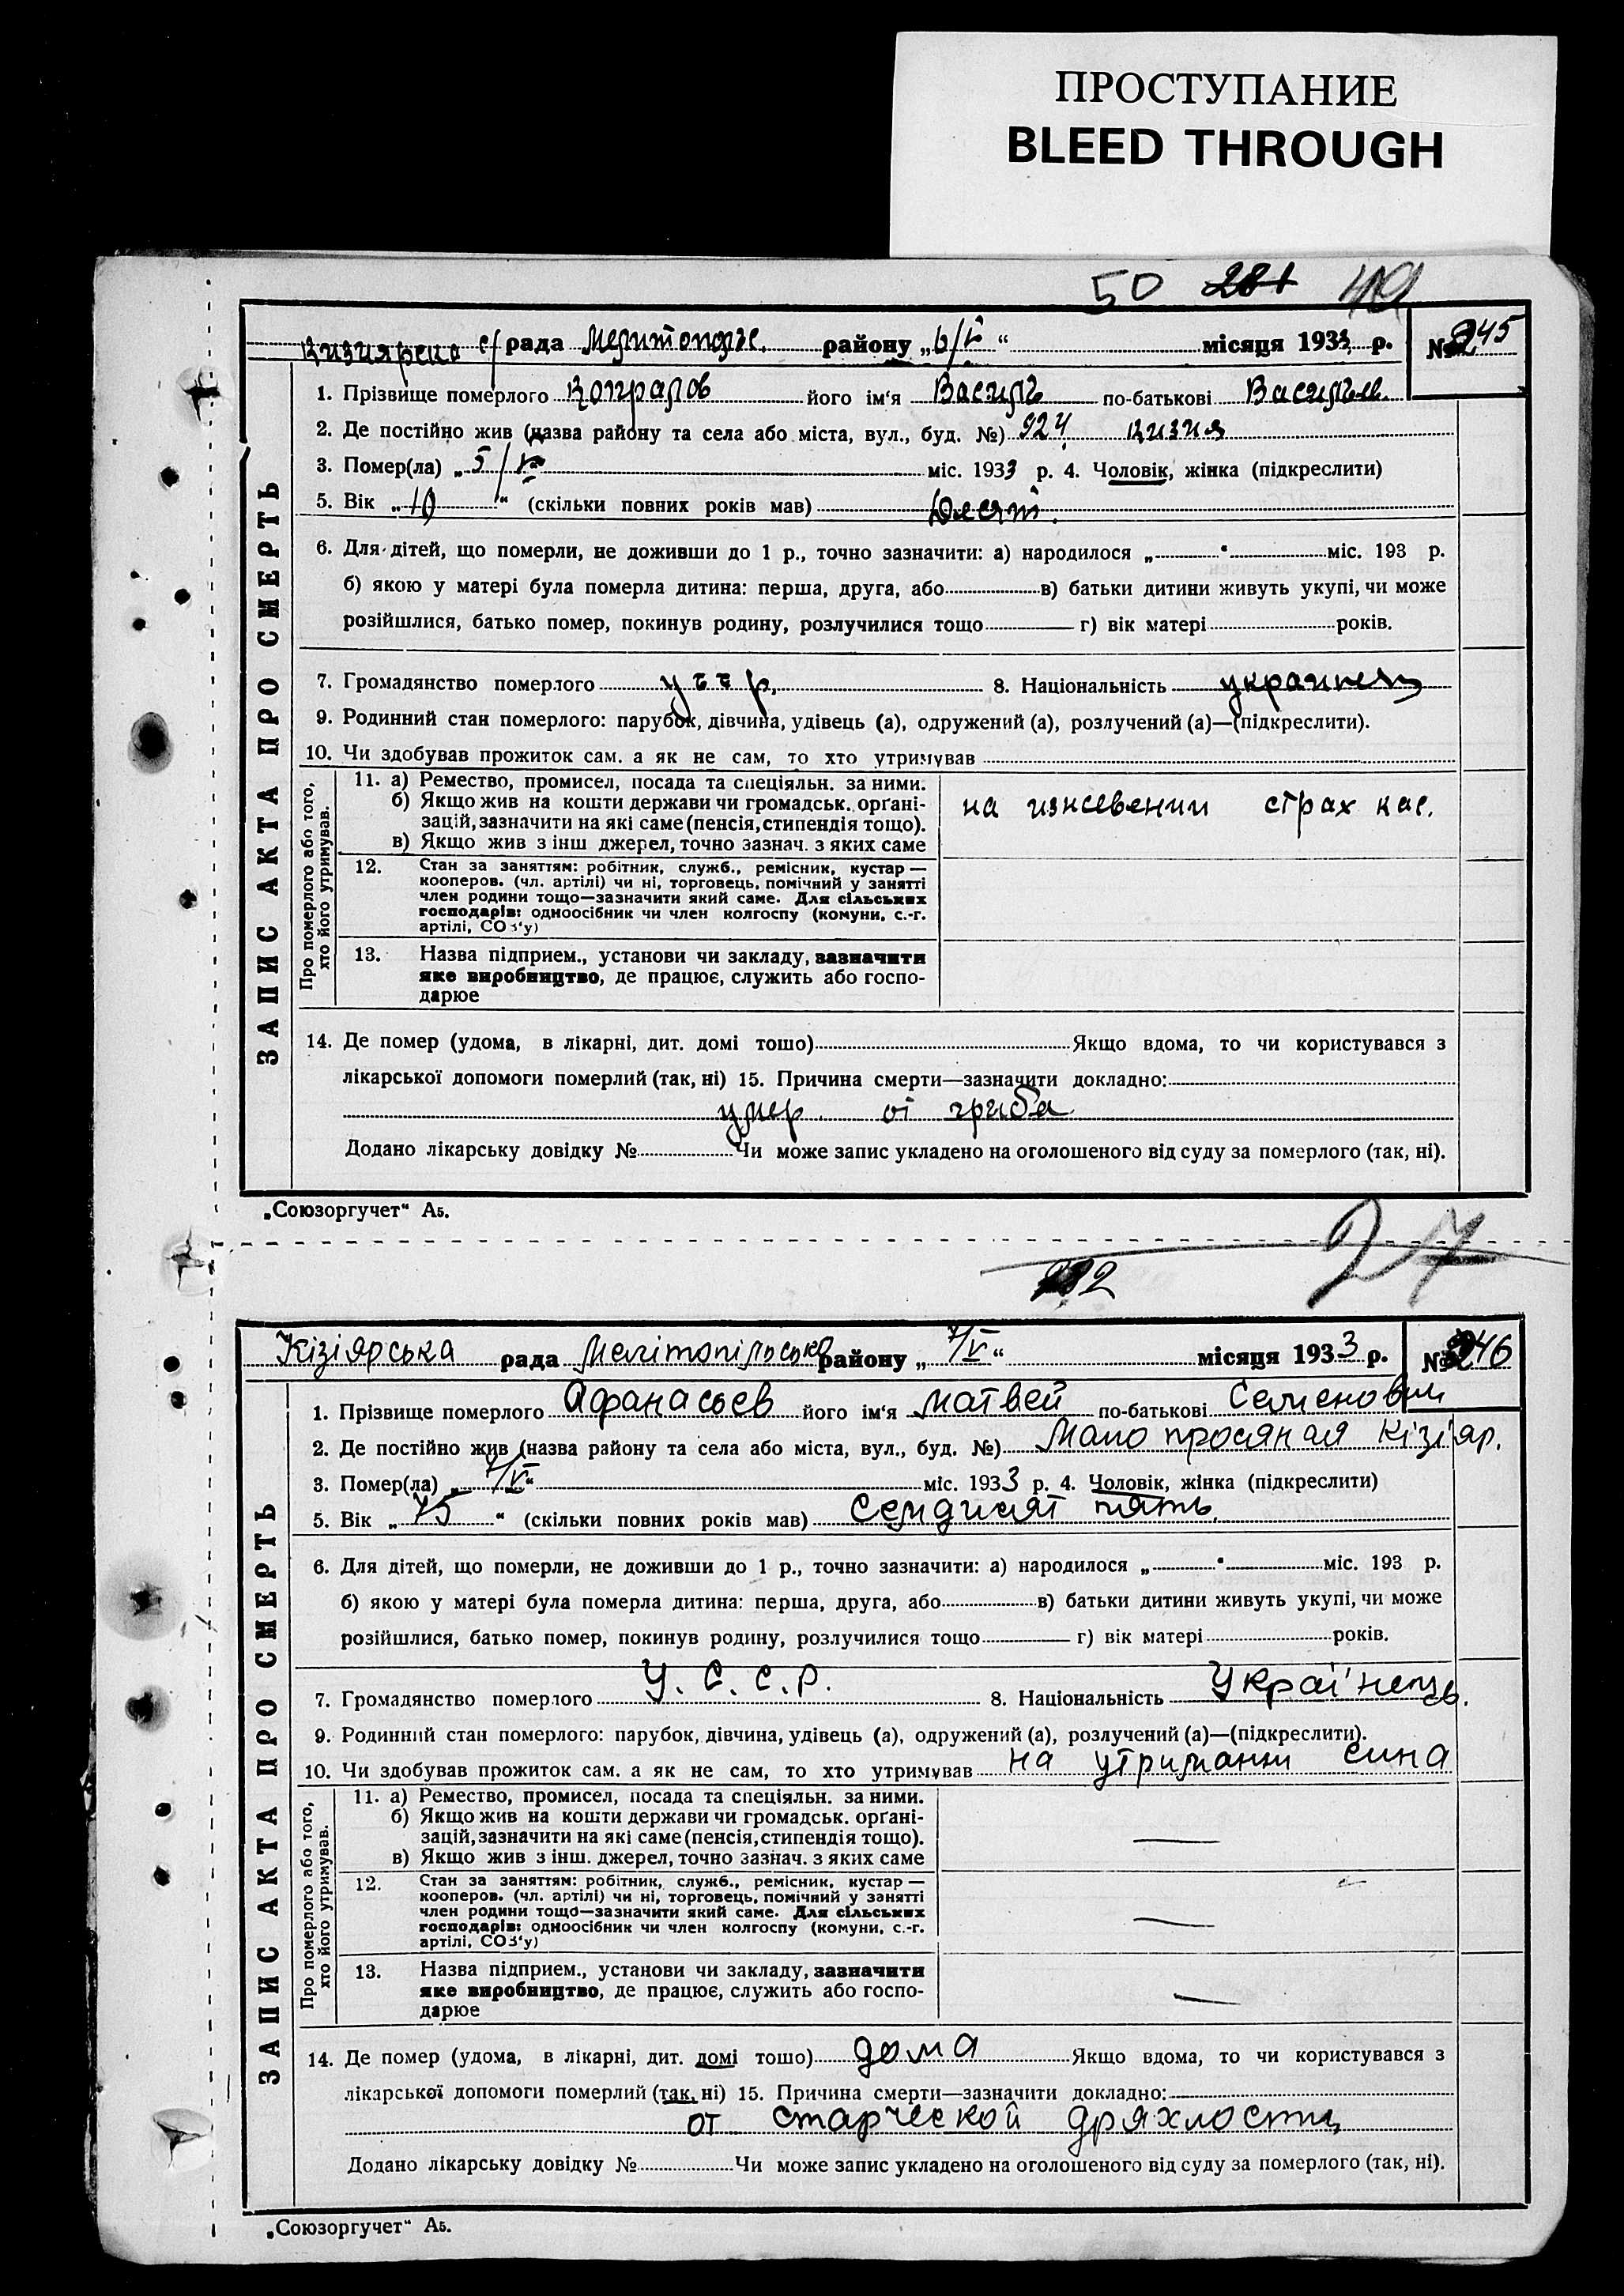 ПРОСТУПАНИЕ
BLEED THROUGH
50 281 49
с/рада района „6/V“ місяця 1933 р. № 245
1. Прізвище померлого його ім‘я Василь по-батькові Васильев.
2. Де постійно жив (назва району та села або міста, вул., буд. №) 924 кизия
3. Помер(ла) „5/V“ міс. 1933 р. 4. Чоловік, жінка (підкреслити)
5. Вік „10“ (скільки повних років мав) Десят.
6. Для дітей, що померли, не доживши до 1 р., точно зазначити: а) народилося „ “ міс. 193 р.
б) якою у матері була померла дитина: перша, друга, або в) батьки дитини живуть укупі, чи може
розійшлися, батько помер, покинув родину, розлучилися тощо г) вік матері років.
7. Громадянство померлого усср. 8. Національність украинец
9. Родинний стан померлого: парубок, дівчина, удівець (а), одружений (а), розлучений (а)—(підкреслити).
10. Чи здобував прожиток сам. а як не сам, то хто утримував
ЗАПИС АКТА ПРО СМЕРТЬ
Про померлого або того, хто його утримував.
11. а) Ремество, промисел, посада та спеціяльн. за ними.
б) Якщо жив на кошти держави чи громадськ. орґані-
зацій, зазначити на які саме (пенсія, стипендія тощо).
в) Якщо жив з інш джерел, точно зазнач. з яких саме
на страх кас.
12. Стан за заняттям: робітник, служб., ремісник, кустар —
кооперов. (чл. артілі) чи ні, торговець, помічний у занятті
член родини тощо—зазначити який саме. Для сільських
господарів: одноосібник чи член колгоспу (комуни, с.-г.
артілі, СОЗ‘у)
13. Назва підприєм., установи чи закладу, зазначити
яке виробництво, де працює, служить або госпо-
дарює
14. Де помер (удома, в лікарні, дит. домі тошо) Якщо вдома, то чи користувався з
лікарської допомоги померлий (так, ні) 15. Причина смерти—зазначити докладно:
умер от гриба
Додано лікарську довідку № Чи може запис укладено на оголошеного від суду за померлого (так, ні).
„Союзоргучет“ А5.
27
Кізіярська рада Мелітопільсько району „7/V“ місяця 1933 р. № 246
1. Прізвище померлого Афанасьєв його ім‘я Матвей по-батькові Семенович
2. Де постійно жив (назва району та села або міста, вул., буд. №) Мало просяная Кізіяр.
3. Помер(ла) „7/V“ міс. 1933 р. 4. Чоловік, жінка (підкреслити)
5. Вік „75“ (скільки повних років мав) Семдисят пять.
6. Для дітей, що померли, не доживши до 1 р., точно зазначити: а) народилося „ “ міс. 193 р.
б) якою у матері була померла дитина: перша, друга, або в) батьки дитини живуть укупі, чи може
розійшлися, батько помер, покинув родину, розлучилися тощо г) вік матері років.
7. Громадянство померлого У.С.С.Р. 8. Національність Україн‘ець.
9. Родинний стан померлого: парубок, дівчина, удівець (а), одружений (а), розлучений (а)—(підкреслити).
10. Чи здобував прожиток сам. а як не сам, то хто утримував на утриманні сина
ЗАПИС АКТА ПРО СМЕРТЬ
Про померлого або того, хто його утримував.
11. а) Ремество, промисел, посада та спеціяльн. за ними.
б) Якщо жив на кошти держави чи громадськ. орґані-
зацій, зазначити на які саме (пенсія, стипендія тощо).
в) Якщо жив з інш. джерел, точно зазнач. з яких саме
12. Стан за заняттям: робітник, служб., ремісник, кустар —
кооперов. (чл. артілі) чи ні, торговець, помічний у занятті
член родини тощо—зазначити який саме. Для сільських
господарів: одноосібник чи член колгоспу (комуни, с.-г.
артілі, СОЗ‘у)
13. Назва підприєм., установи чи закладу, зазначити
яке виробництво, де працює, служить або госпо-
дарює
14. Де помер (удома, в лікарні, дит. домі тошо) дома Якщо вдома, то чи користувався з
лікарської допомоги померлий (так, ні) 15. Причина смерти—зазначити докладно:
от старческой дряхлости
Додано лікарську довідку № Чи може запис укладено на оголошеного від суду за померлого (так, ні).
„Союзоргучет“ А5.